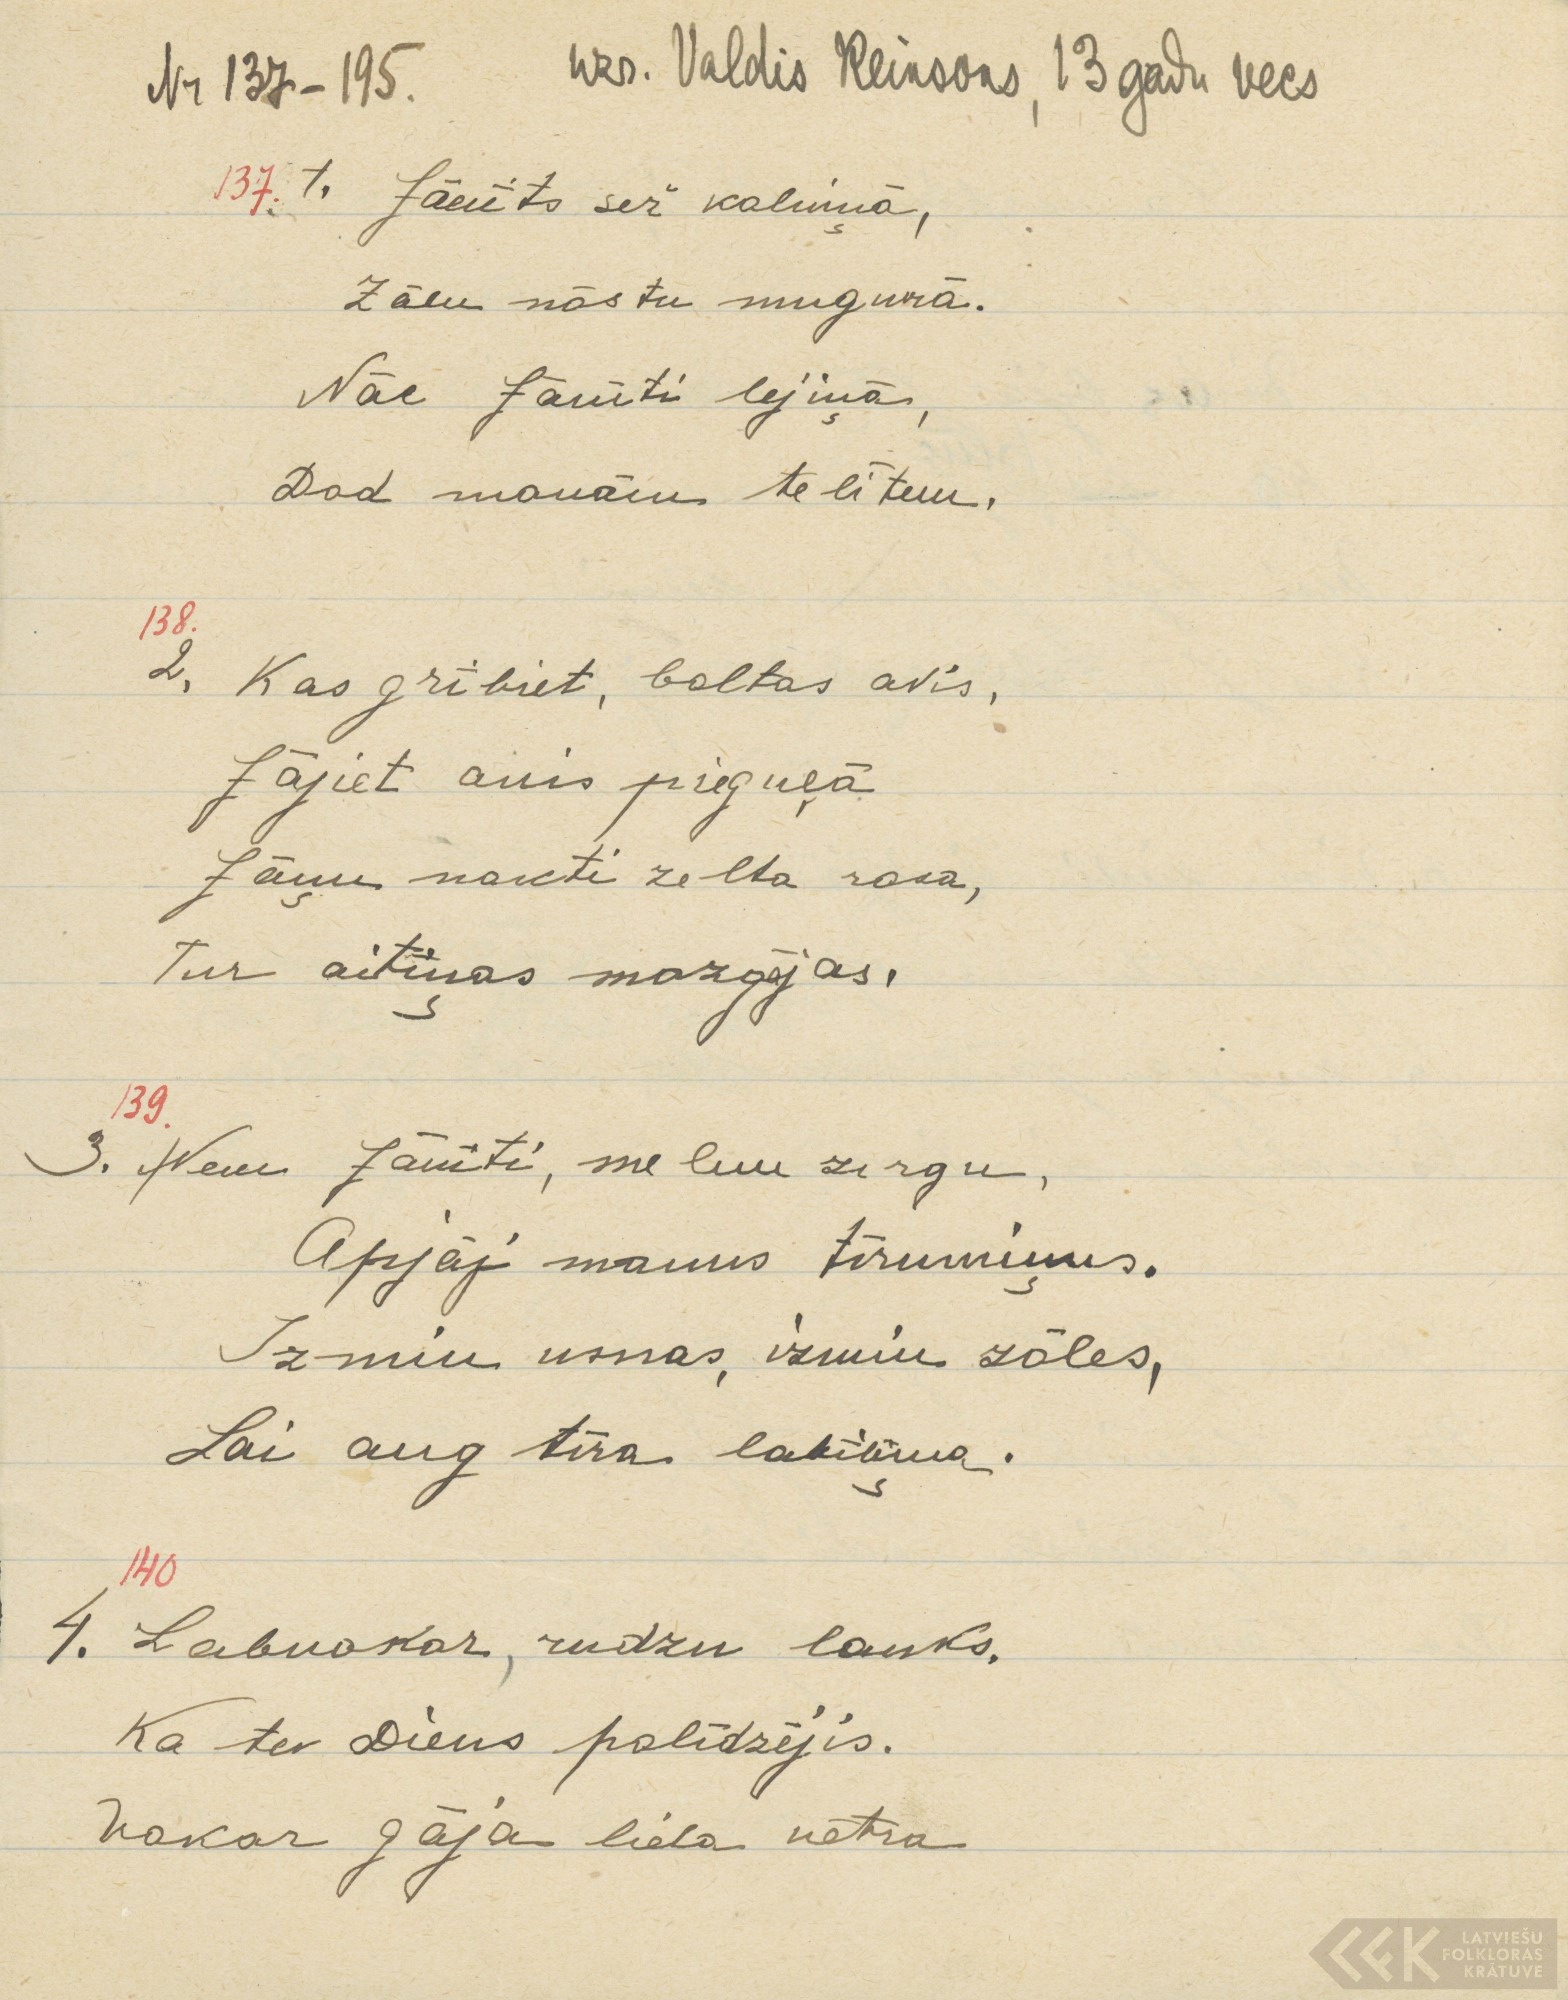 Nr 137-195. uzr. Valdis Reinsons, 13 gadu vecs
137. 1. Jānīts sēž kalniņā,
Zāļu nāstu mugurā.
Nāc Jānīti lejiņā,
Dod manām telītem.
138.
2. Kas gribiet, baltas avis,
Jājiet avis pieguļā
Jāņu nakti zelta rasa,
Tur aitiņas mazgājas.
139.
3. Ņem Jānīti, melnu zirgu,
Apjāj manus tīrumiņus.
Izmin usnas, izmin zāles,
Lai aug tīra labībiņa.
140
4. Labvakar, rudzu lauks.
Ka tev Dievs palīdzējis.
Vakar gāja liela vētra
LATVIEŠU
FOLKLORAS
KRĀTUVE